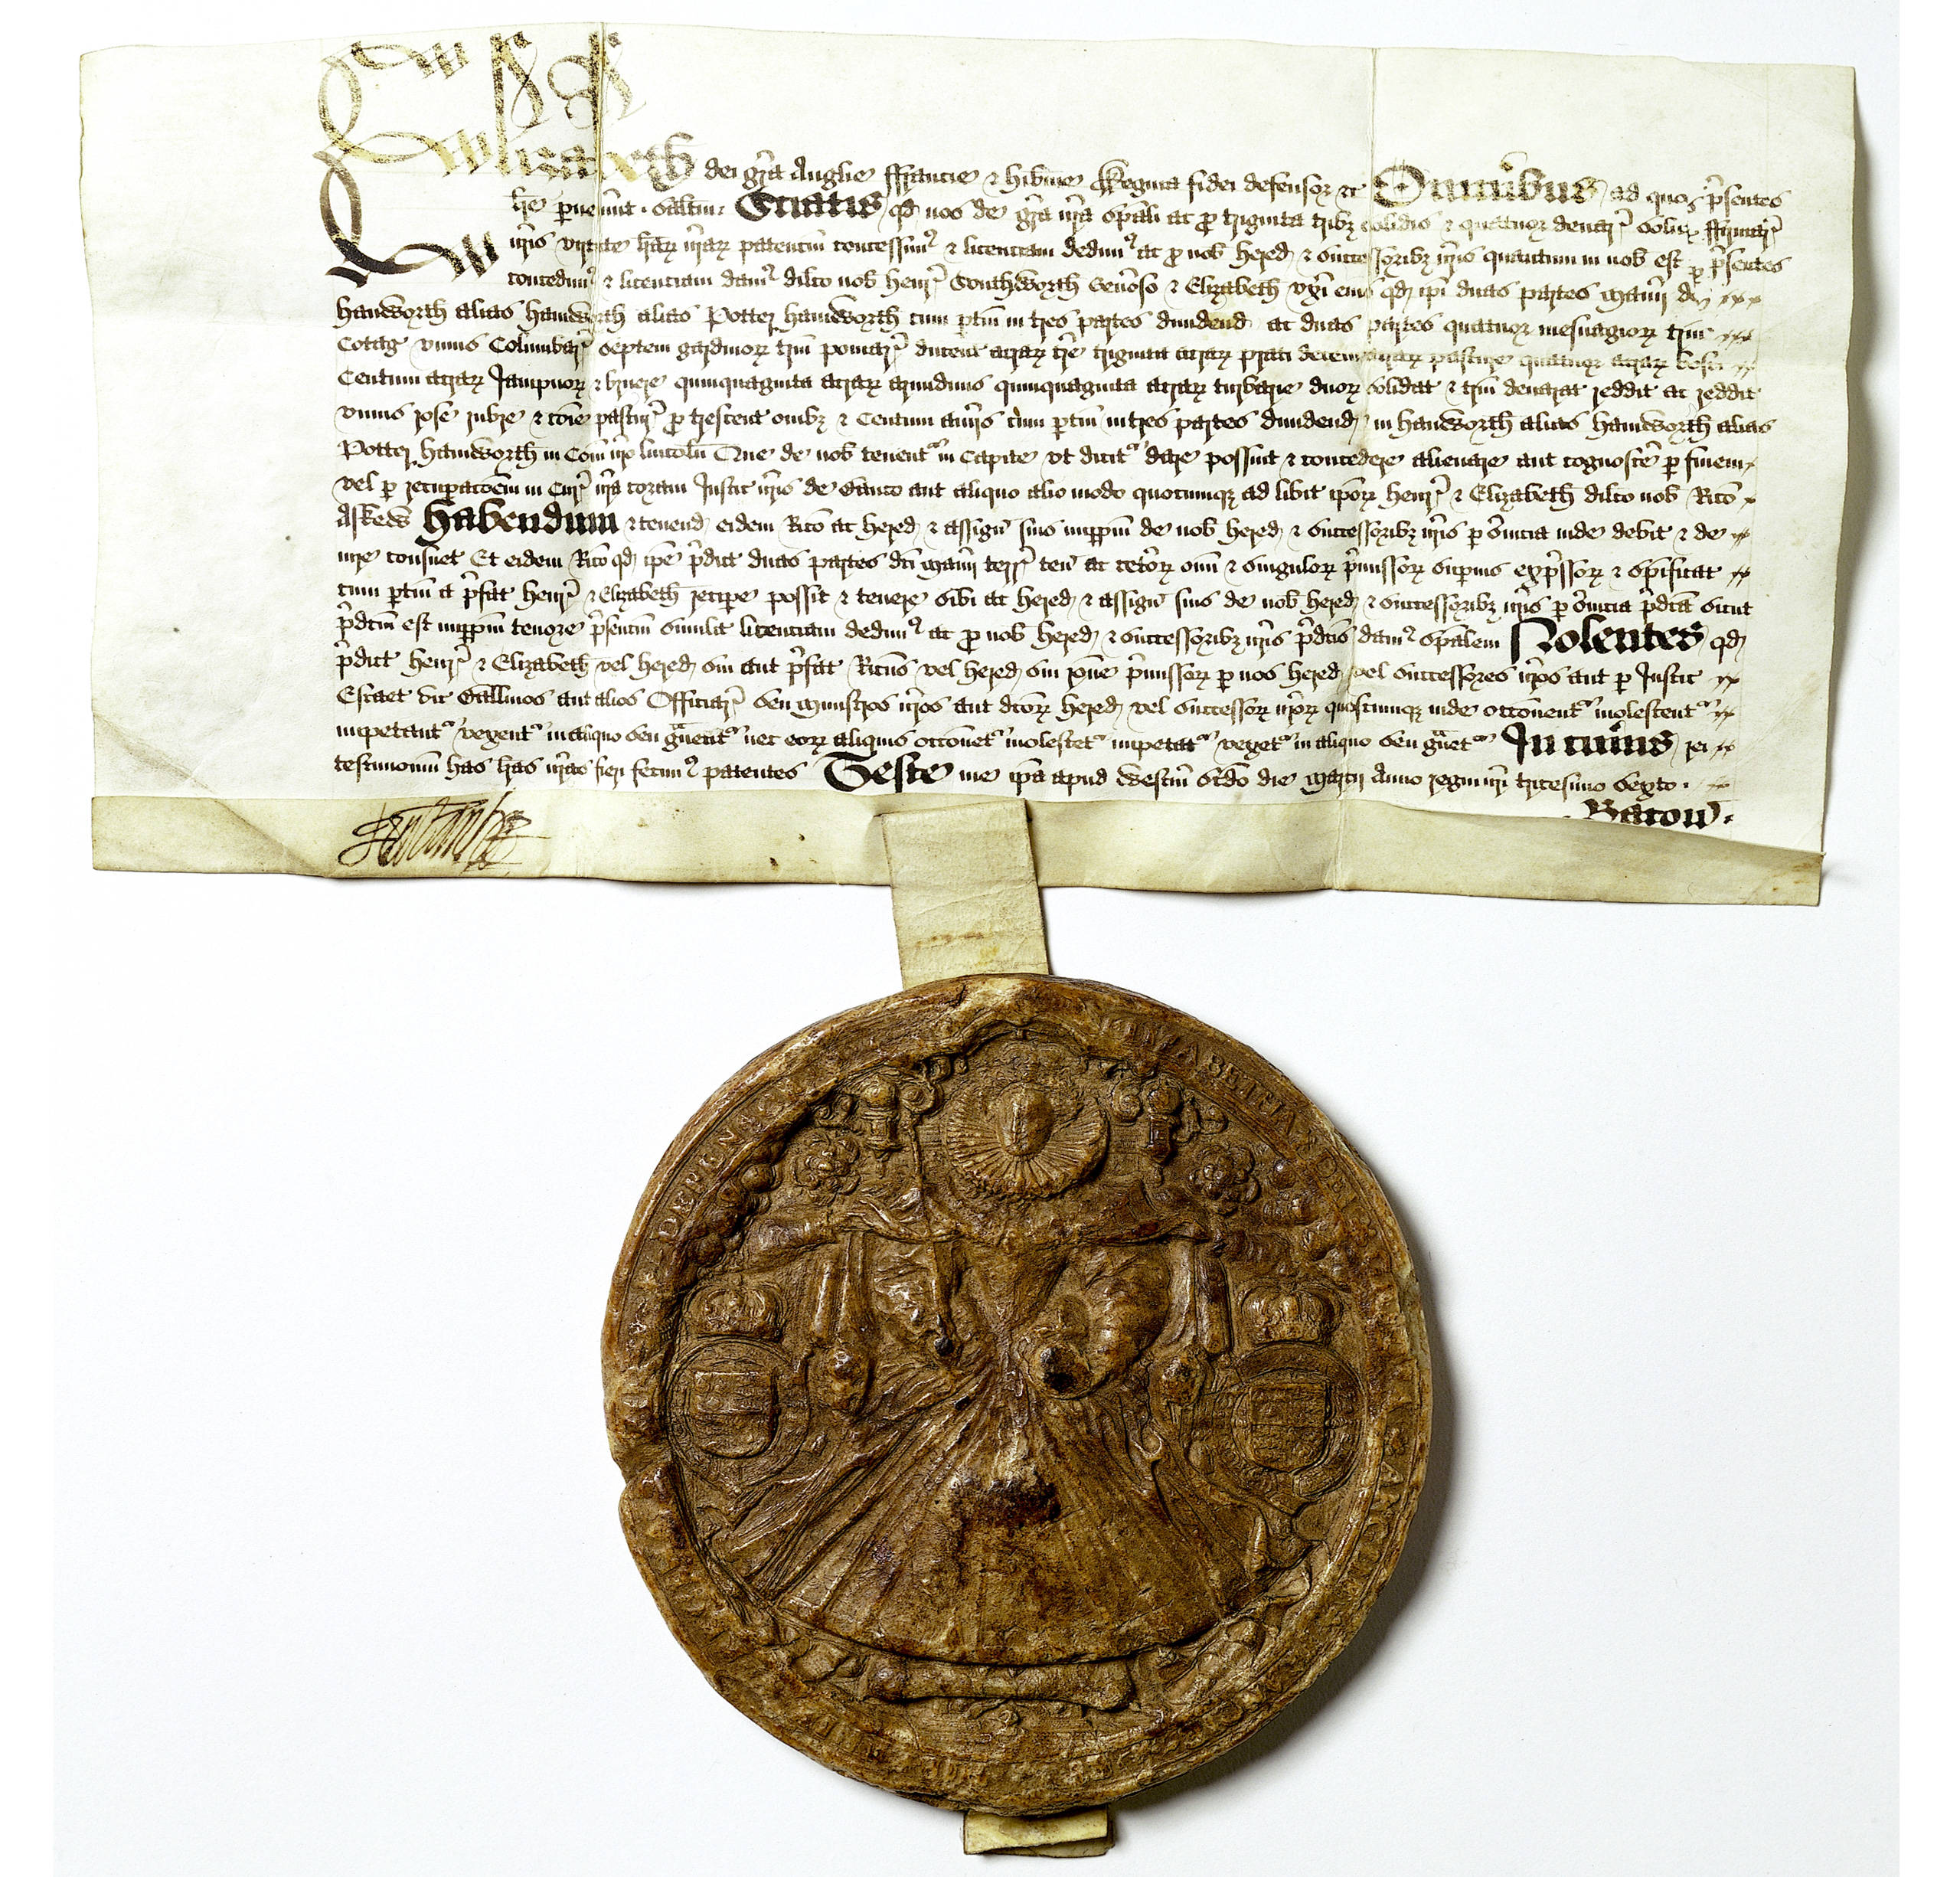 Elizabeth dei gr̃a Anglie ffrancie & Hib̃nie Regina fidei defensor &c Om̃ibus ad quos p̃sentes
l̃re p̱uen̄int saltm̃ Sciatis qd̃ nos de gr̃a nr̃a sp̃ali ac p̱ triginta trib&#xA76B; solidis & quatuor denar̃ solut̃ ffirmar̃
nr̃is virtute l̃rar nr̃ar patentiu̅ concessim&#xA770; & licentiam dedim&#xA770; ac p̱ nob̃ hered̃ & successorib&#xA76B; nr̃is quantum in nob̃ est p̱ p̃sentes
concedim&#xA770; & licentiam dam&#xA770; dilc̃o nob̃ Henr̃ Southworth Gen̄oso & Elizabeth vxi eius qd̃ ip̃i duas partes Maner̃ de
Hanworth alias Hamworth alias Potter Hamworth cum p̱tin̄ in tres partes diuidend̃ ac duas partes quatuor mesuagior triu̅
Cotag̃ vnius Columbar̃ septem gardinor triu̅ pomar̃ ducent acrar t̃re triginta acrar prati decem acrar pasture quatuor acrar bosci
Centum acrar Jampnor & bruere quinquaginta acrar arundinis quinquaginta acrar turbarie duor solidat & triu̅ denarat reddit ac reddit
vnius rose rubre & co̅ie pastur̃ p̱ trescent ouib&#xA76B; & Centum auer̃is cum p̱tin̄ in tres partes diuidend̃ in Hanworth alias Hamworth alias
Potter Hamworth in Com̃ nr̃o Lincoln̄ Que de nob̃ tenent&#x27; in Capite vt dicit&#x27; dare possint & concedere alienare aut cognosc̃e p̱ finem
vel p̱ recup̱ac̃oem in Cur̃ nr̃a coram Justic nr̃is de Banco aut aliquo alio modo quocumq&#xA76B; ad libit̃ ip̃or Henr̃ & Elizabeth dilc̃o nob̃ Ric̃o
Askew Habendum & tenend̃ eidem Ric̃o ac hered̃ & assign̄ suis imp̱p̱m̃ de nob̃ hered̃ & successorib&#xA76B; nr̃is p̱ s̃uicia inde debit̃ & de
iure consuet Et eidem Ric̃o qd̃ ip̃e p̃dict duas partes dc̃i Maner̃ terr̃ ten̄ ac cetor om̃i & singulor p̃missor sup̱ius exp̃ssor & sp̃ificat
cum p̱tin̄ a p̃fat Henr̃ & Elizabeth recip̱e possit & tenere sibi ac hered̃ & assign̄ suis de nob̃ hered̃ & successorib&#xA76B; nr̃is p̱ s̃uicia p̃dc̃a sicut
p̃dc̃m est imp̱p̱m̃ tenore p̃sentiu̅ similit̃ licentiam dedim&#xA770; ac p̱ nob̃ hered̃ & successorib&#xA76B; nr̃is p̃dc̃is dam&#xA770; sp̃alem Nolentes qd̃
p̃dict Henr̃ & Elizabeth vel hered̃ sui aut p̃fat Ric̃us vel hered̃ sui r̃o̅ne p̃missor p̱ nos hered̃ vel successores nr̃os aut p̱ Justic
Escaet vic Ball̃iuos aut alios Officiar̃ seu Ministros nr̃os aut dc̃or hered̃ vel successor nr̃or quoscumq&#xA76B; inde occo̅nent&#x27; molestent&#x27;
impetant&#x27; vexent&#x27; in aliquo seu g̃uent&#x27; nec eor aliquis occo̅net&#x27; molestet&#x27; impetat&#x27; vexet&#x27; in aliquo seu g̃uet&#x27; In cuius rei
testimoniu̅ has l̃ras nr̃as fieri fecim&#xA770; patentes Teste me ip̃a apud Westm̃ sc̃do die Marcij Anno regni nr̃i tricesimo sexto
Bacon
ELIZABETHA DEI
DEFENS